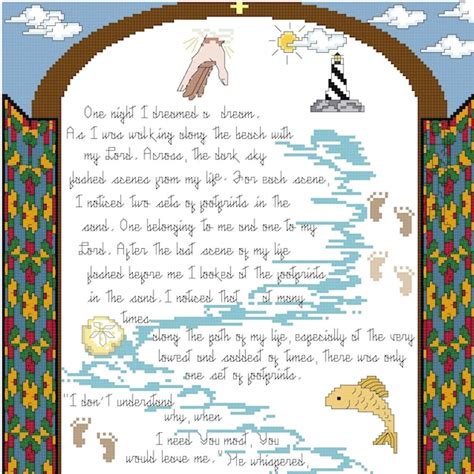 One night I dreamed a dream.
As I was walking along the beach with
my Lord. Across, the dark sky
flashed scenes from my life. For each scene,
I noticed two sets of footprints in the
sand. One belonging to me and one to my
Lord. After the last scene of my life
flashed before me I looked at the footprints
in the sand. I noticed that at many
times
along the path of my life, especially at the very
lowest and saddest of times, there was only
one set of footprints.
"I don't understand
why, when
I need You most, You
would leave me." He whispered,